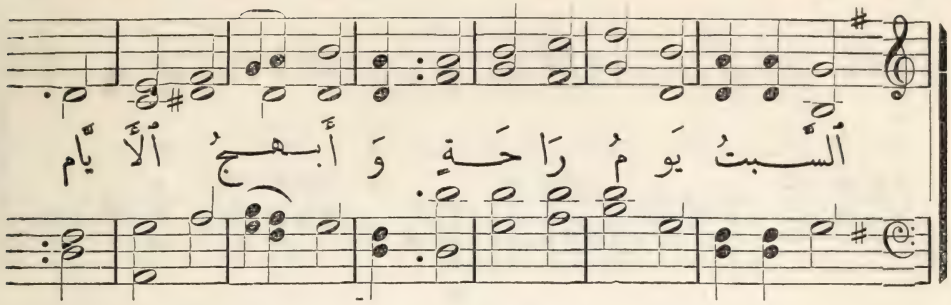 اَلسَّبتُ يَو مُ رَا حَـةٍ وَ أَبـهـجُ الأَ يَّام